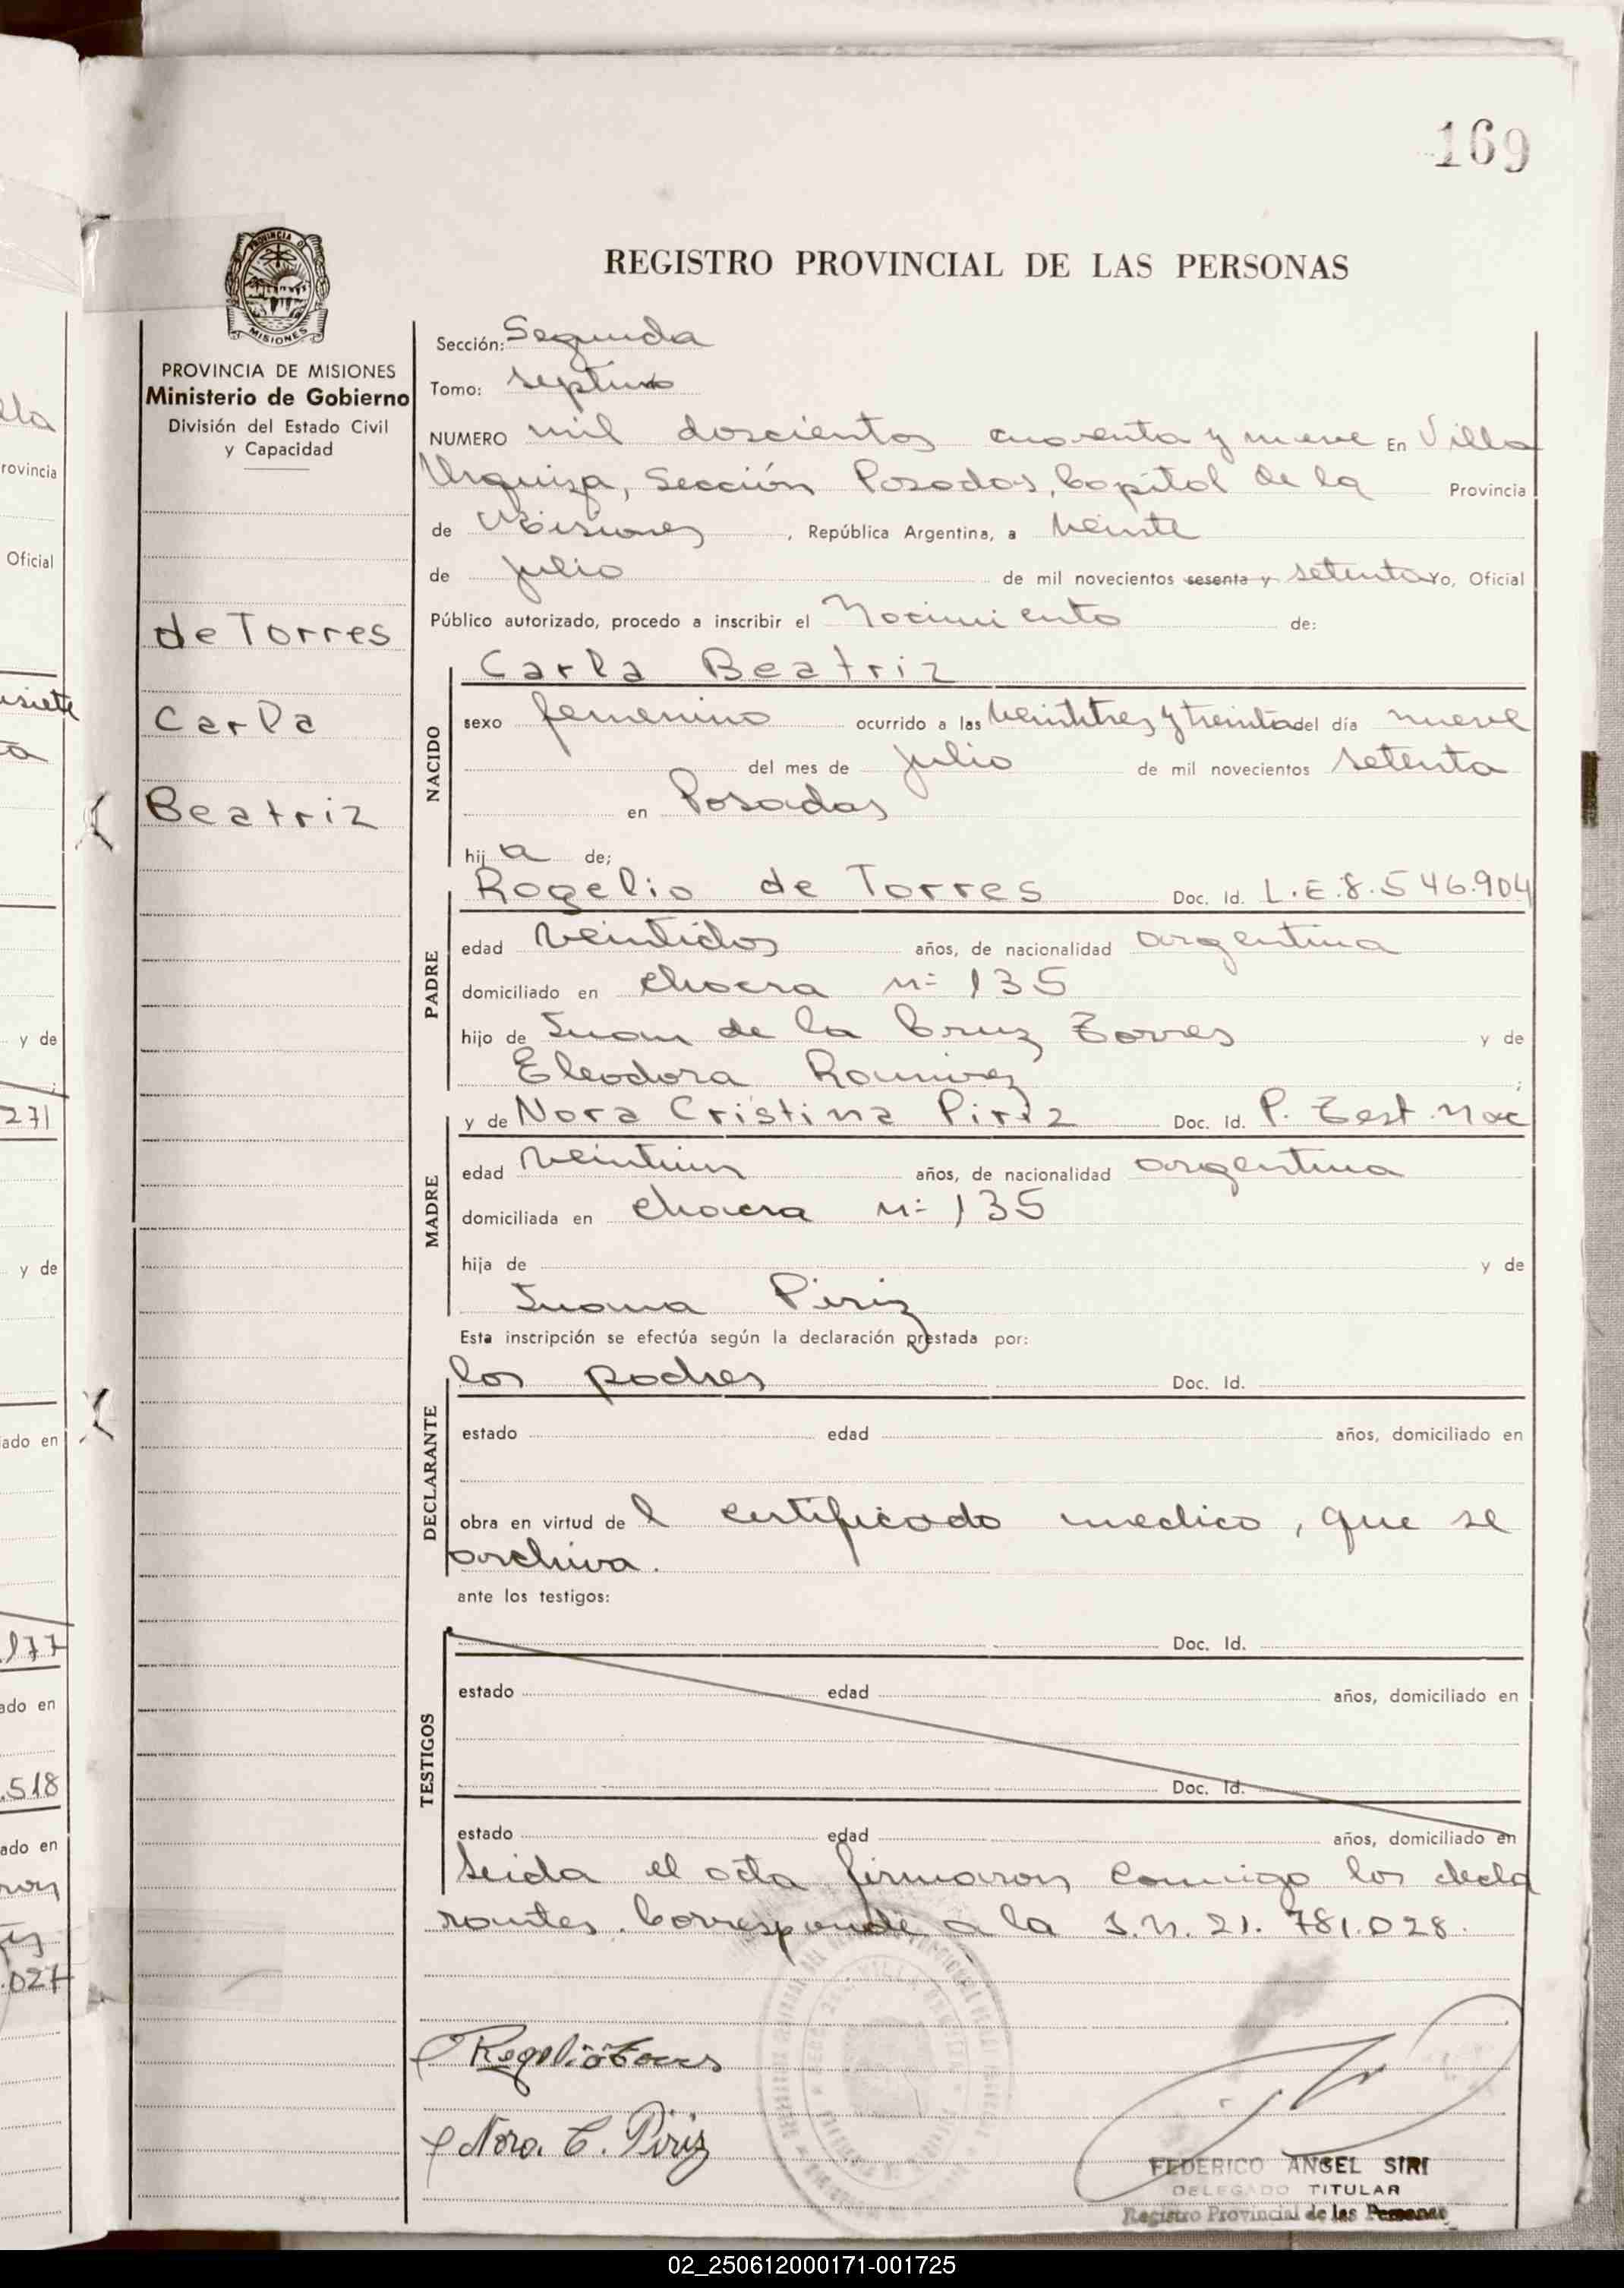 169
PROVINCIA DE
MISIONES
REGISTRO PROVINCIAL DE LAS PERSONAS
PROVINCIA DE MISIONES
Ministerio de Gobierno
División del Estado Civil
y Capacidad
de Torres
Carla
Beatriz
Sección: Segunda
Tomo: septimo
NUMERO mil doscientos cuarenta y nueve En Villa
Urquiza, Sección Posadas, Capital de la Provincia
de Misiones, República Argentina, a veinte
de julio de mil novecientos sesenta y setenta Yo, Oficial
Público autorizado, procedo a inscribir el Nacimiento de:
NACIDO
Carla Beatriz
sexo femenino ocurrido a las veintitres y treinta del día nueve
del mes de julio de mil novecientos setenta
en Posadas
hij a de;
PADRE
Rogelio de Torres Doc. Id. L.E.8.546.904
edad veintidos años, de nacionalidad argentina
domiciliado en chacra nº 135
hijo de Juan de la Cruz Torres y de
Eleodora Ramirez ;
MADRE
y de Nora Cristina Piriz Doc. Id. P. Test. Nac
edad veintiun años, de nacionalidad argentina
domiciliada en chacra nº 135
hija de y de
Juana Piriz
Esta inscripción se efectúa según la declaración prestada por:
DECLARANTE
los padres Doc. Id.
estado edad años, domiciliado en
obra en virtud de l certificado medico, que se
archiva.
ante los testigos:
TESTIGOS
Doc. Id.
estado edad años, domiciliado en
Doc. Id.
estado edad años, domiciliado en
Leida el acta firmaron conmigo los decla
rantes. Corresponde a la I.N. 21.781.028.
Rogelio Torres
Nora C. Piriz
FEDERICO ANGEL SIRI
DELEGADO TITULAR
Registro Provincial de las Personas
lla
rovincia
Oficial
isiete
ta
y de
271
y de
iado en
177
ado en
.518
ado en
ron
.027
02_250612000171-001725